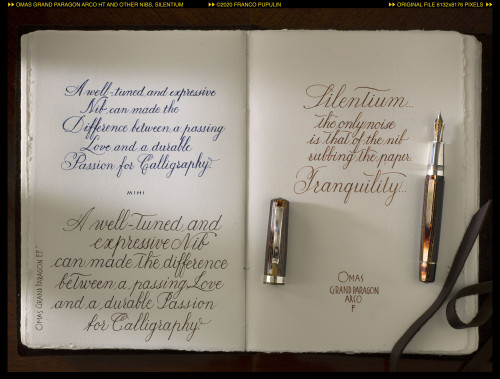 OMAS GRAND PARAGON ARCO HT AND OTHER NIBS, SILENTIUM
©2020 FRANCO PUPULIN
ORIGINAL FILE 6132x8176 PIXELS
A well-tuned and expressive
Nib can made the
Difference between a passing
Love and a durable
Passion for Calligraphy.
MIHI
A well-Tuned and
expressive Nib
can made the difference
between a passing Love
and a durable Passion
for Calligraphy.
OMAS GRAND PARAGON EF
Silentium...
the only noise
is that of the nib
rubbing the paper.
Tranquility...
OMAS
GRAND PARAGON
ARCO
F